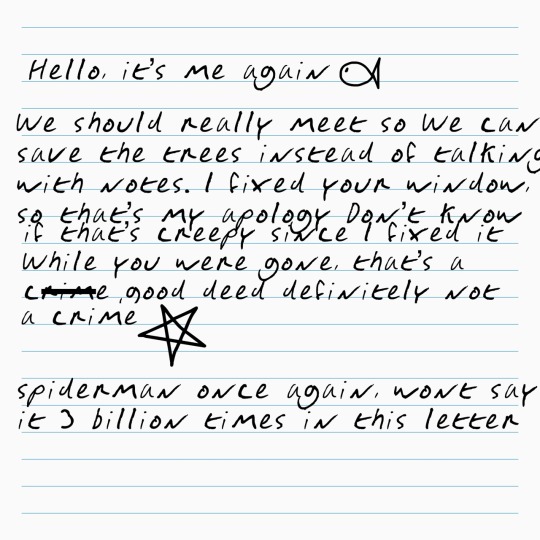 Hello, it's me again
We should really meet so we can
save the trees instead of talking
with notes. I fixed your window,
so that's my apology Don't know
if that's creepy since I fixed it
While you were gone, that's a
crime, good deed definitely not
a crime
spiderman once again, wont say
it 3 billion times in this letter